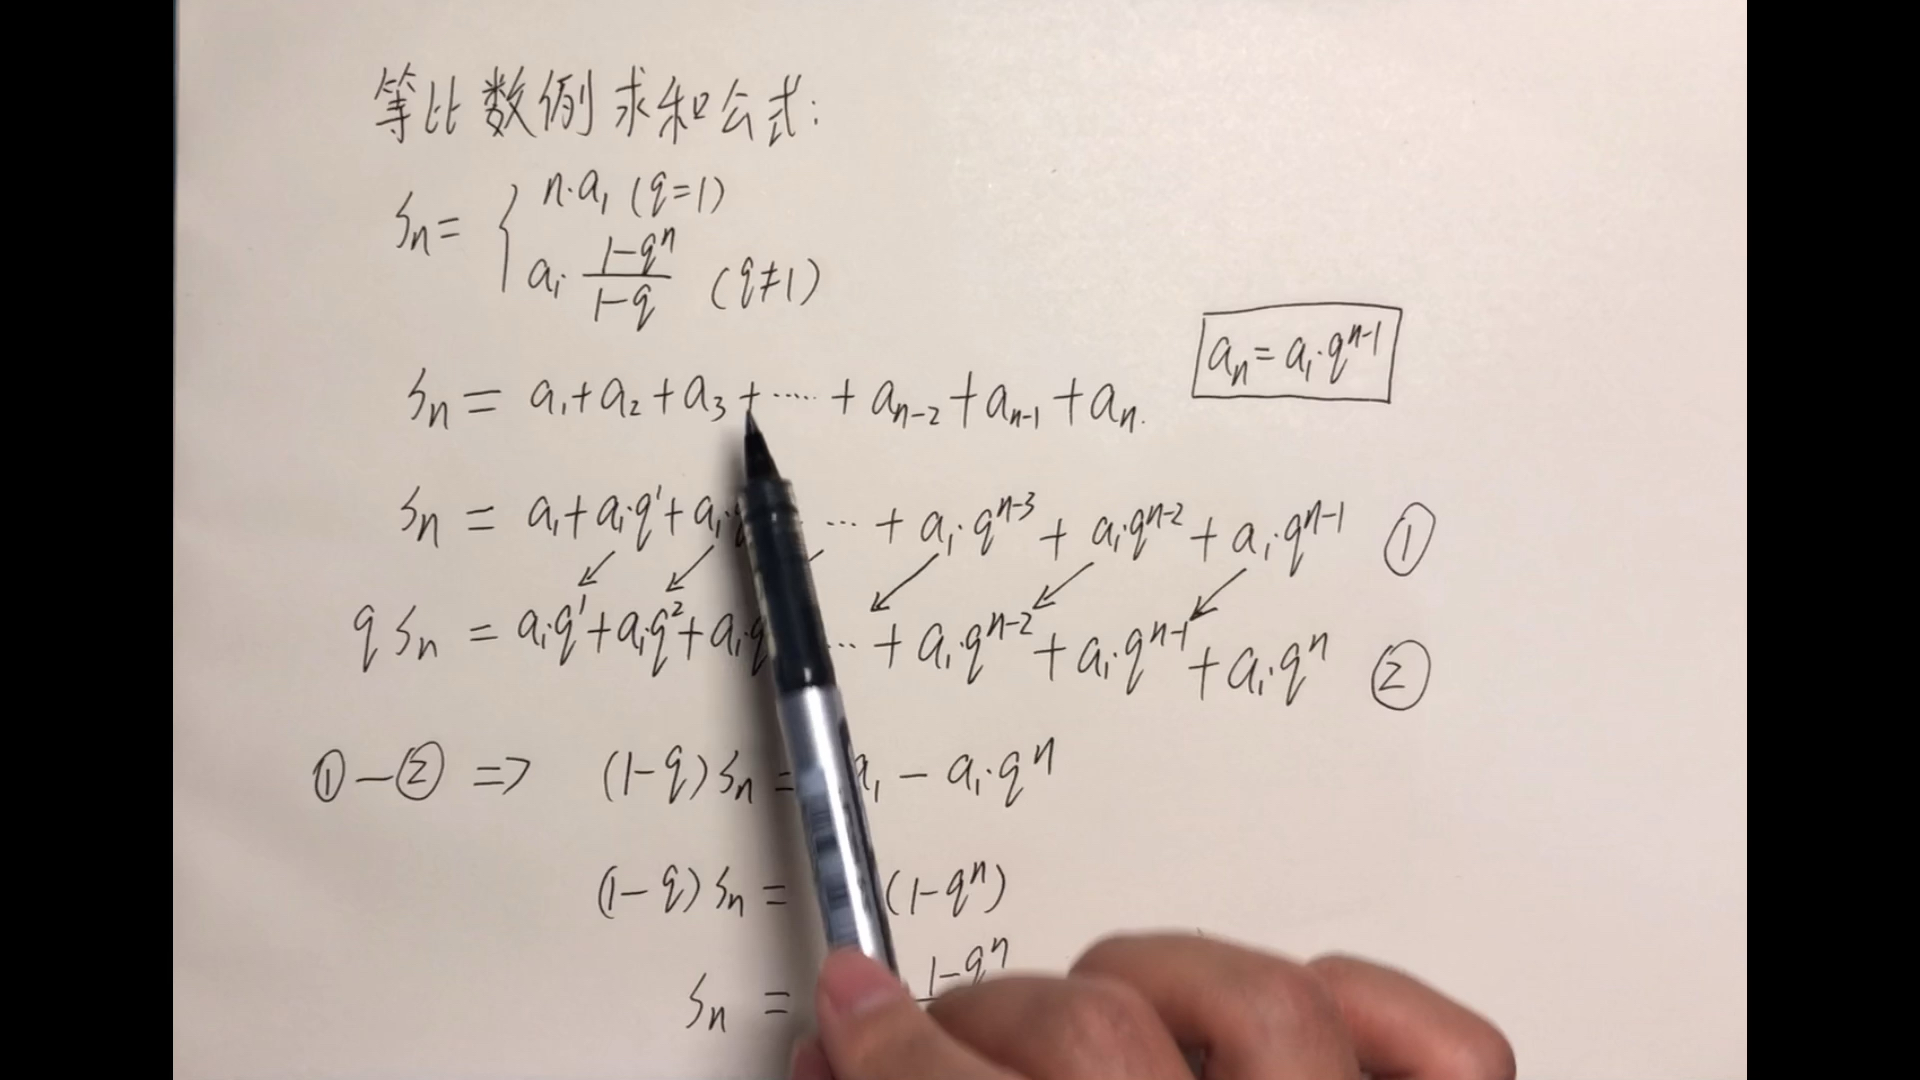 等比数例求和公式:
Sn = { n·a₁ (q=1)
a₁· (1-qⁿ)/(1-q) (q≠1)
aₙ = a₁·qⁿ⁻¹
Sn = a₁ + a₂ + a₃ + ····· + aₙ₋₂ + aₙ₋₁ + aₙ.
Sn = a₁ + a₁·q¹ + a₁· ··· + a₁·qⁿ⁻³ + a₁·qⁿ⁻² + a₁·qⁿ⁻¹ ①
qSn = a₁·q¹ + a₁·q² + a₁·q ··· + a₁·qⁿ⁻² + a₁·qⁿ⁻¹ + a₁·qⁿ ②
①-② => (1-q)Sn = a₁ - a₁·qⁿ
(1-q)Sn = (1-qⁿ)
Sn = 1-qⁿ